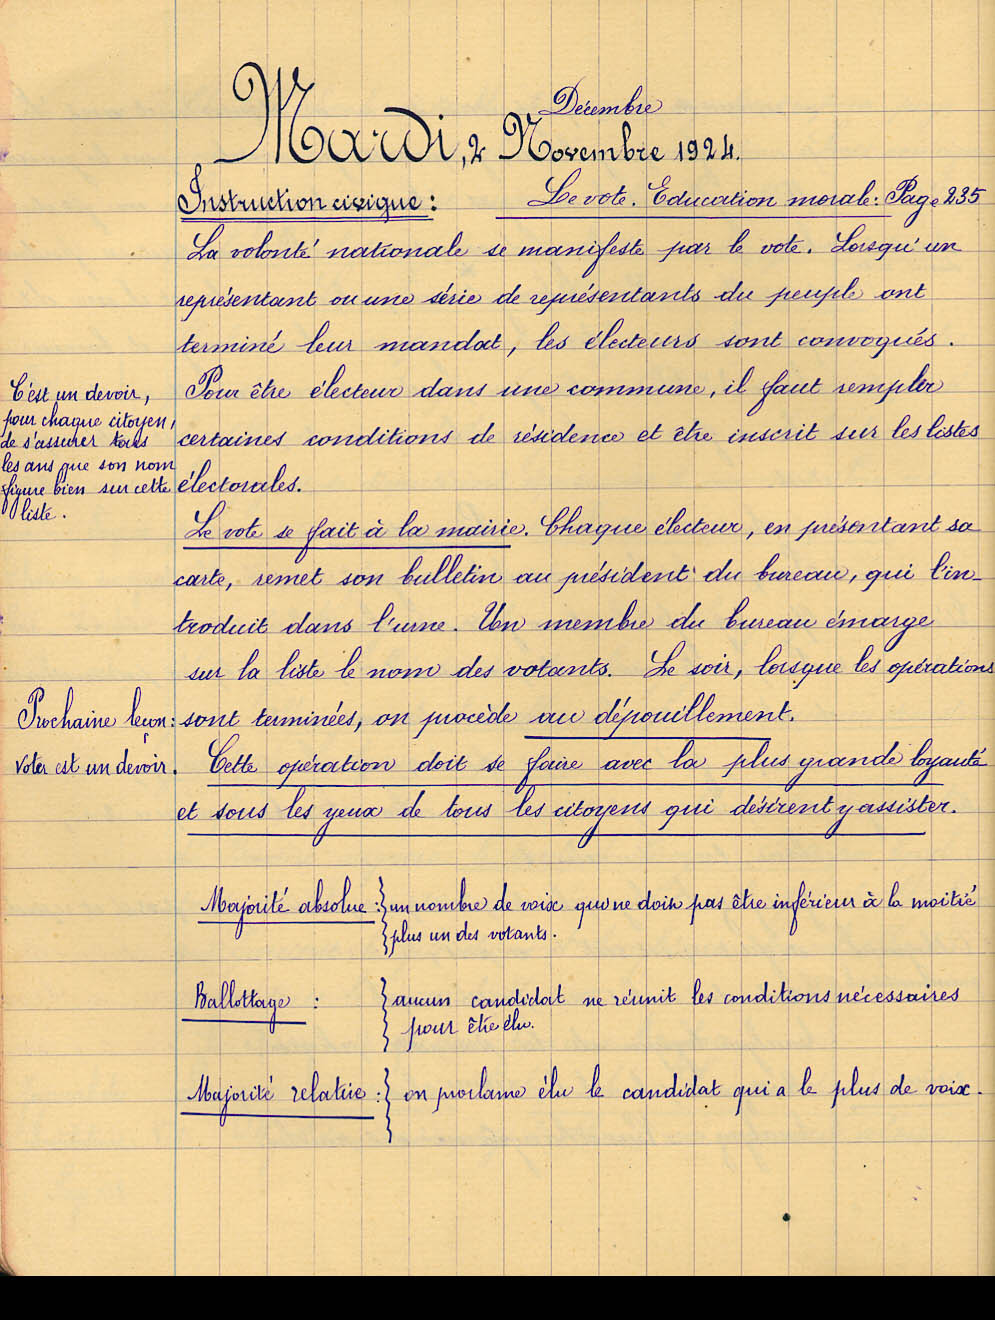 Décembre
Mardi, 2 Novembre 1924.
Instruction civique : Le vote. Education morale: Page 235
La volonté nationale se manifeste par le vote. Lorsqu'un
représentant ou une série de représentants du peuple ont
terminé leur mandat, les électeurs sont convoqués.
Pour être électeur dans une commune, il faut rempler
certaines conditions de résidence et être inscrit sur les listes
électorales.
C'est un devoir,
pour chaque citoyen,
de s'assurer tous
les ans que son nom
figure bien sur cette
liste.
Le vote se fait à la mairie. Chaque électeur, en présentant sa
carte, remet son bulletin au président du bureau, qui l'in-
troduit dans l'urne. Un membre du bureau émarge
sur la liste le nom des votants. Le soir, lorsque les opérations
sont terminées, on procède au dépouillement.
Cette opération doit se faire avec la plus grande loyauté
et sous les yeux de tous les citoyens qui désirent y assister.
Prochaine leçon :
voter est un devoir.
Majorité absolue : } un nombre de voix qui ne doit pas être inférieur à la moitié
plus un des votants.
Ballottage : } aucun candidat ne réunit les conditions nécessaires
pour être élu.
Majorité relative : } on proclame élu le candidat qui a le plus de voix.